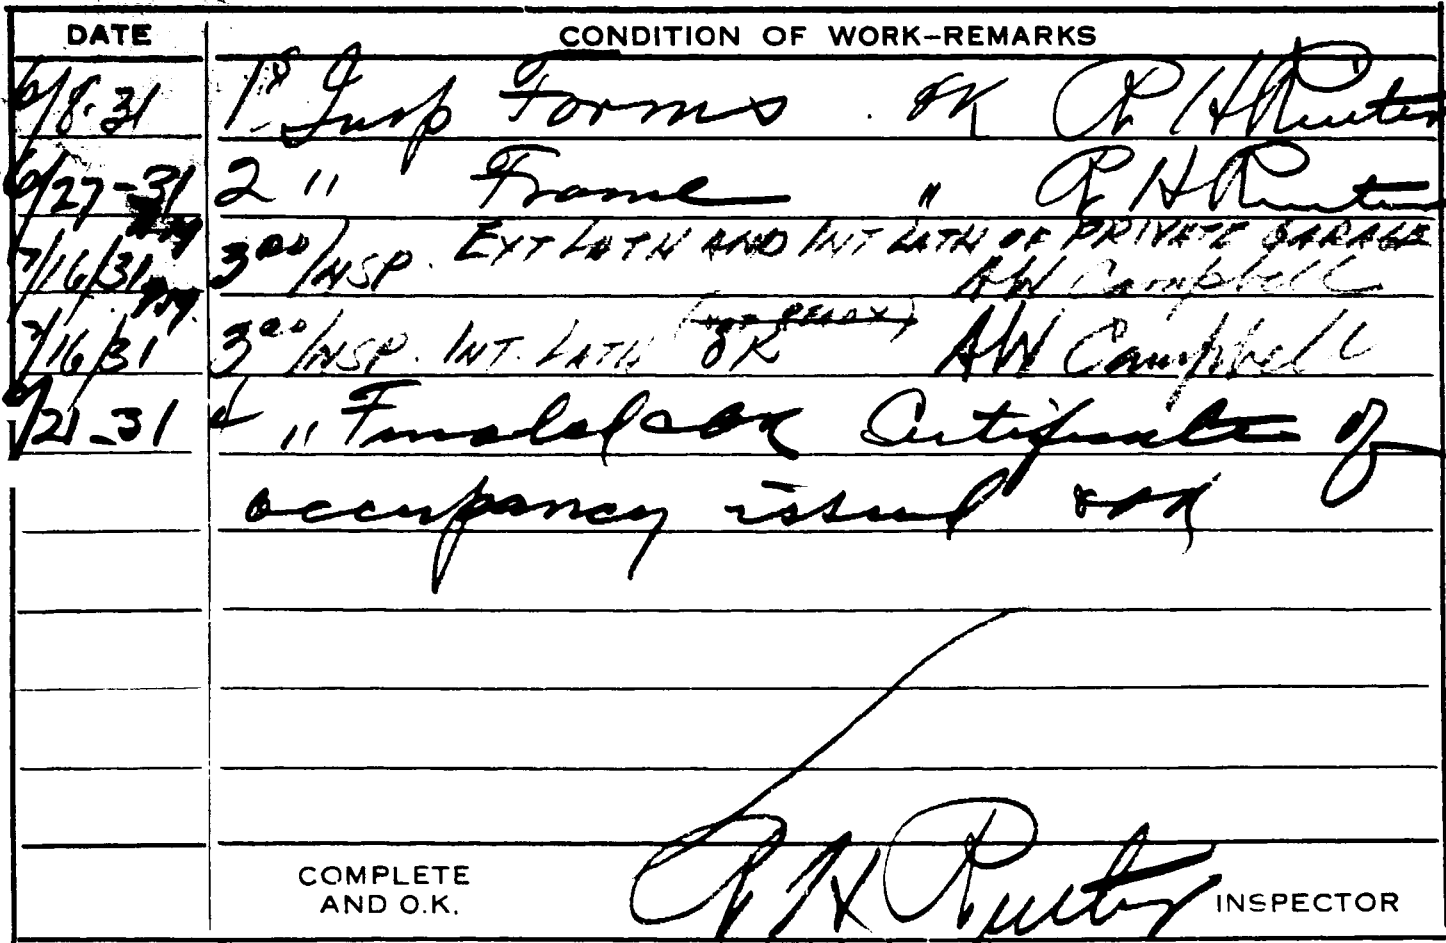 DATE CONDITION OF WORK–REMARKS
6/8-31 1st Insp Forms OK R H Ruiter
6/27-31 2 " Frame " R H Ruiter
7/16/31 3RD INSP. EXT LATH AND INT LATH OF PRIVATE GARAGE
AW Campbell
(NOT READY)
7/16/31 3RD INSP. INT. LATH OK AW Campbell
21-31 4 " Final OK Certificate of
occupancy issued
COMPLETE
AND O.K. R H Ruiter INSPECTOR